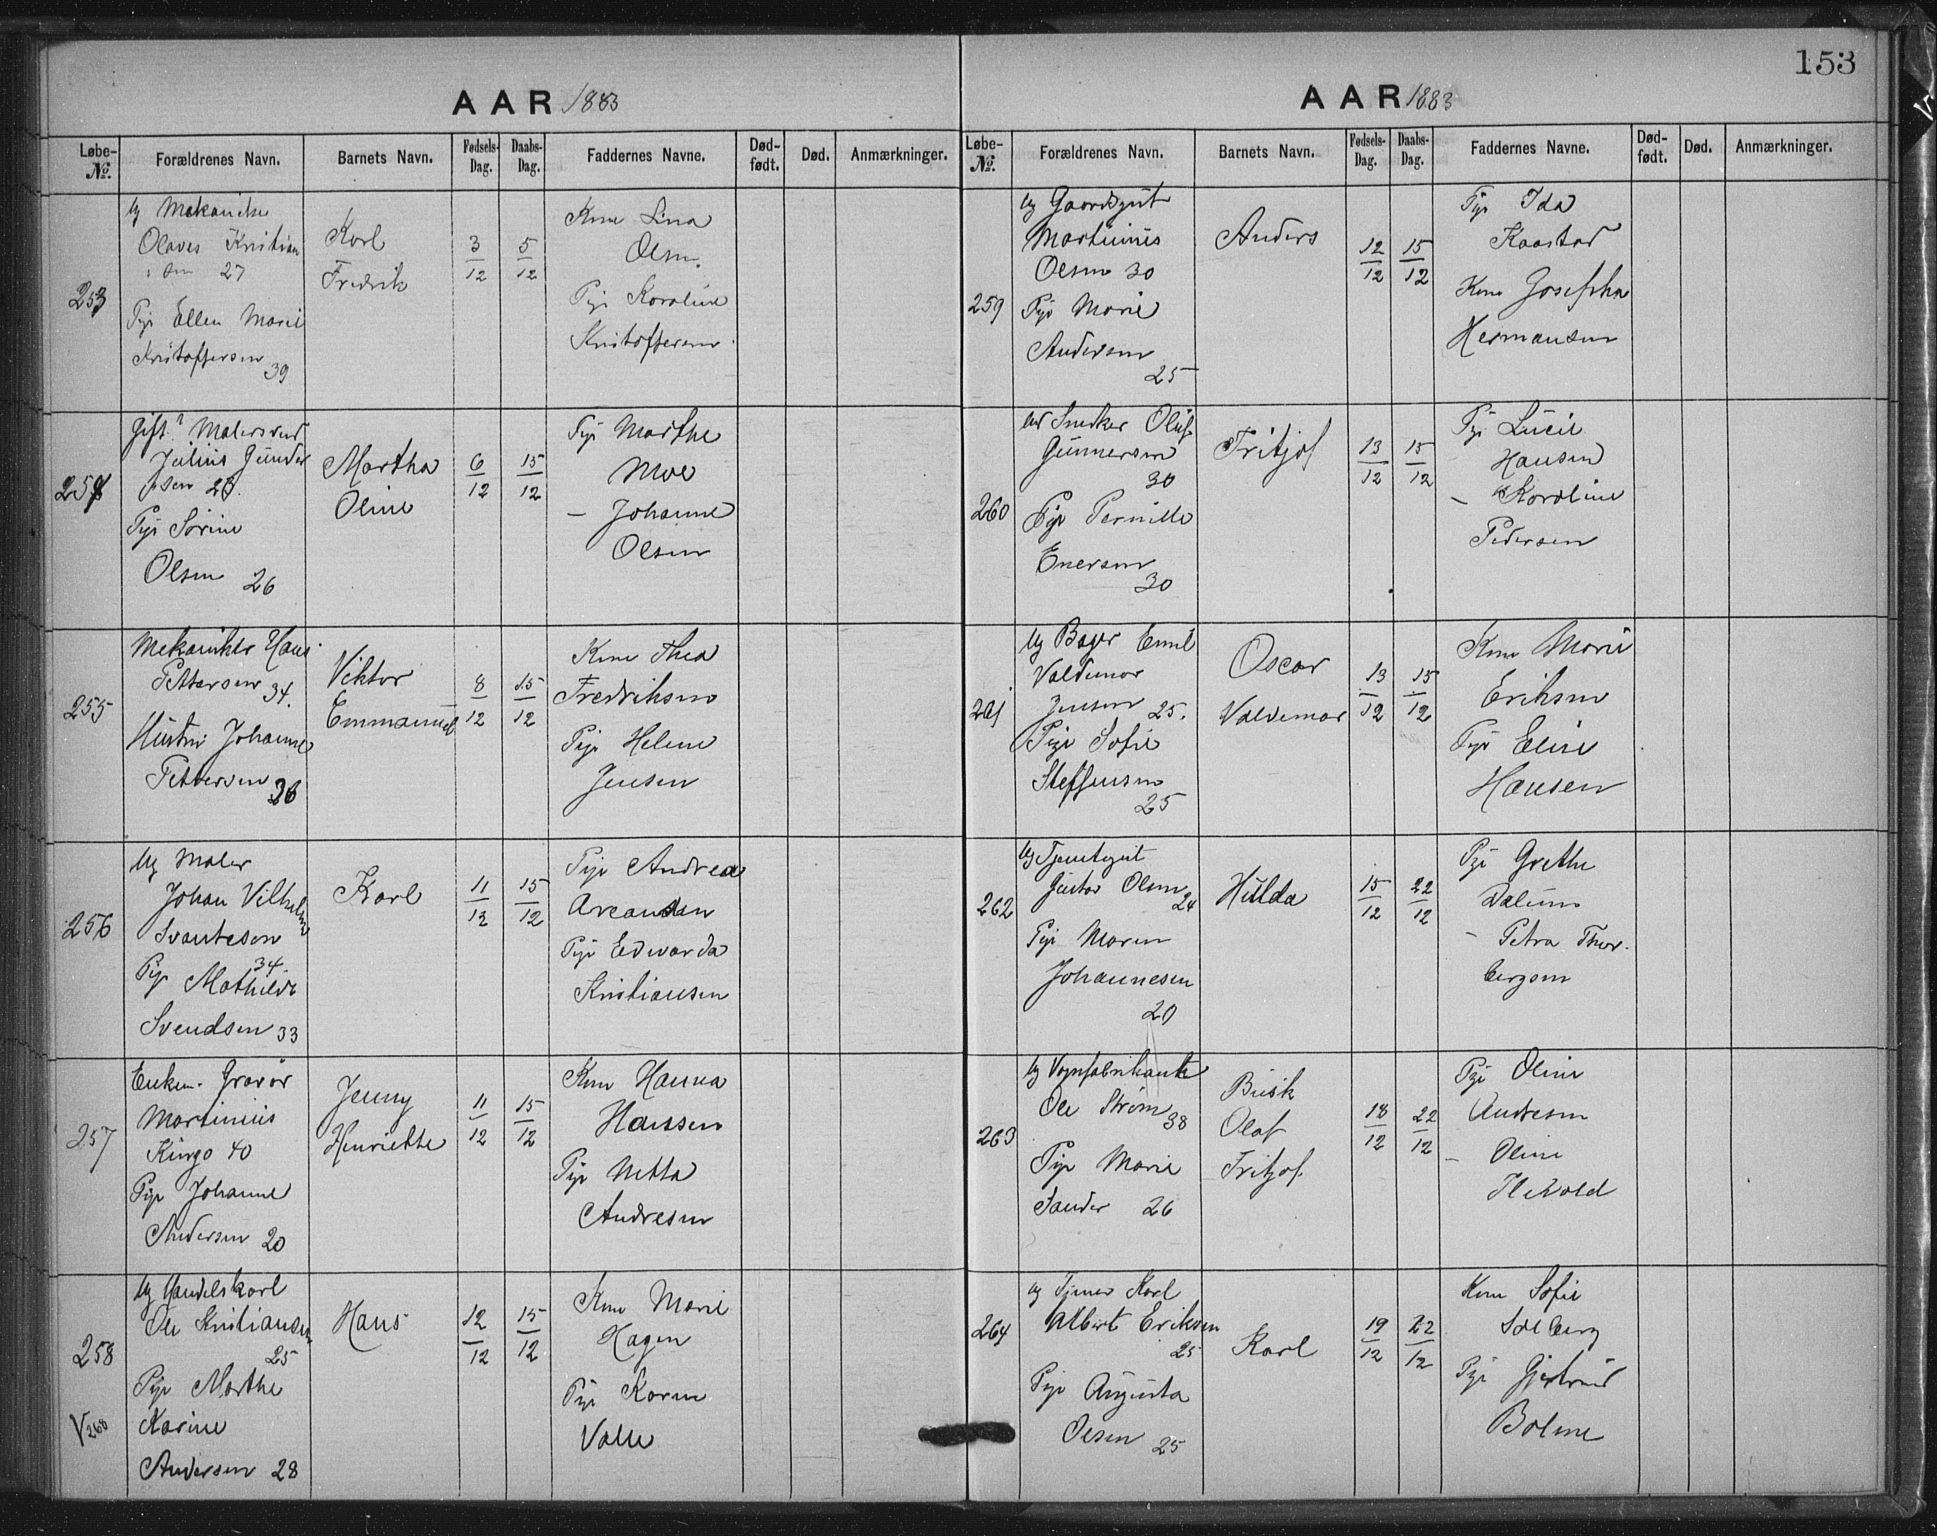 153
AAR 1883
Løbe-№. Forældrenes Navn. Barnets Navn. Fødsels-Dag. Daabs-Dag. Faddernes Navne. Død-født. Død. Anmærkninger.
253
Ug Mekaniker
Olaves Kristian
sen 27
Pige Ellen Marie
Kristoffersen
39
Karl
Fredrik
3/12
5/12
Kone Lina
Olsen.
Pige Karoline
Kristoffersen
254
Gift? Malersvend
Julius Gunder
sen 26.
Pige Sørine
Olsen 26
Martha
Oline
6/12
15/12
Pige Marthe
Moe
– Johanne
Olsen
255
Mekanikker Hans
Pettersen 34.
Hustru Johanne
Pettersen 36
Viktor
Emmanuel
8/12
15/12
Kone Thea
Fredriksen
Pige Helene
Jensen
256
Ug Maler
Johan Vilhelm
Svantesen
34
Pige Mathilde
Svendsen 33
Karl
11/12
15/12
Pige Andrea
Pige Edvarda
Kristiansen
257
Enkem. Gravør
Martinius
Kingo 40
Pige Johanne
Andersen 20
Jenny
Henriette
11/12
15/12
Kone Hanna
Hanssen
Pige Netta
Andresen
258
V 268
Ug Handelskarl
Ole Kristiansen
25
Pige Marthe
Karine
Andersen 28
Hans
12/12
15/12
Kone Marie
Hagen
Pige Karen
Valle
AAR 1883
Løbe-№. Forældrenes Navn. Barnets Navn. Fødsels-Dag. Daabs-Dag. Faddernes Navne. Død-født. Død. Anmærkninger.
259
Ug Gaardsgut
Martinius
Olsen 30
Pige Marie
Andersen
25
Anders
12/12
15/12
Pige Ida
Kaastad
Kone Josefha
Hermansen
260
Snedker Oluf
Gunnersen
30
Pige Pernille
Enersen
30
Fritjof
13/12
15/12
Pige Lucie
Hansen
– Karoline
Pedersen
261
Ug Bager Emil
Valdemar
Jensen 25.
Pige Sofie
Steffensen
25
Oscar
Valdemar
13/12
15/12
Kone Marie
Eriksen
Pige Elise
Hansen
262
Ug Tjenstegut
Gustav Olsen
24
Pige Maren
Johannesen
29
Hulda
15/12
22/12
Pige Grethe
Dalum
– Petra Thor-
bergsen
263
Ug Vognfabrikant
Ole Strøm
38
Pige Marie
Sander 26
Busk
Olaf
Fritjof
18/12
22/12
Pige Oline
Andresen
– Oline
264
Ug Tjener Karl
Albert Eriksen
25
Pige Augusta
Olsen 25
Karl
19/12
22/12
Kone Sofie
Solberg
Pige Gjertrud
Bolme